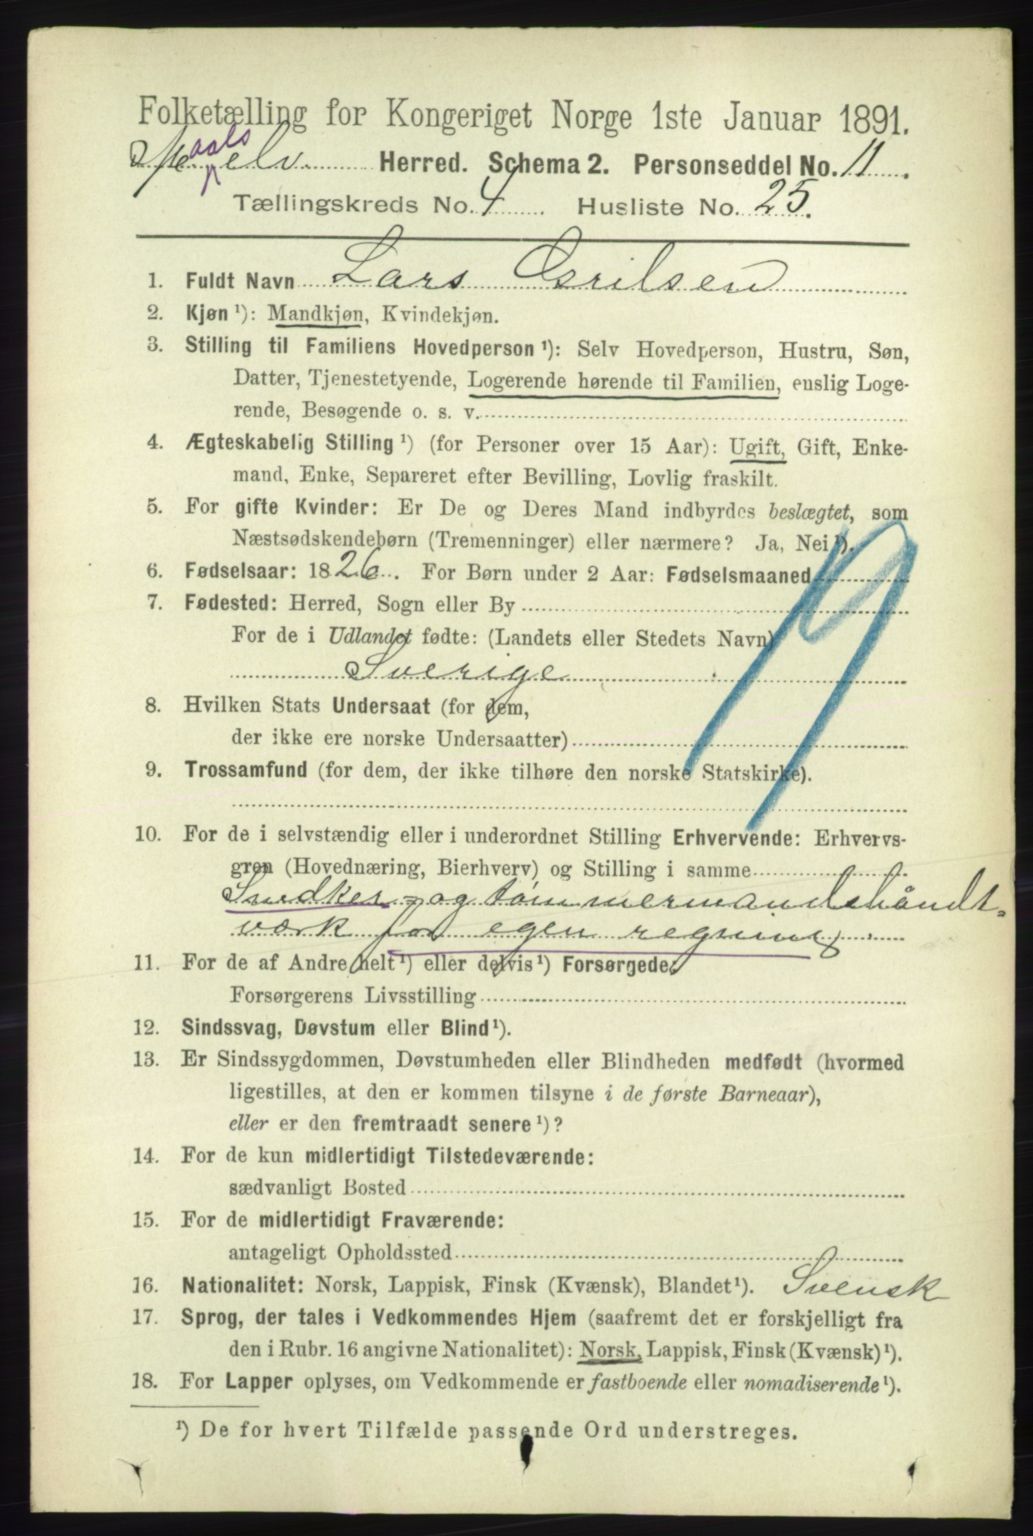 Folketælling for Kongeriget Norge 1ste Januar 1891.
Maalselv Herred. Schema 2. Personseddel No. 11.
Tællingskreds No. 4 Husliste No. 25.
1. Fuldt Navn Lars Esrilsen
2. Kjøn ¹): Mandkjøn, Kvindekjøn.
3. Stilling til Familiens Hovedperson ¹): Selv Hovedperson, Hustru, Søn,
Datter, Tjenestetyende, Logerende hørende til Familien, enslig Loge-
rende, Besøgende o. s. v.
4. Ægteskabelig Stilling ¹) (for Personer over 15 Aar): Ugift, Gift, Enke-
mand, Enke, Separeret efter Bevilling, Lovlig fraskilt.
5. For gifte Kvinder: Er De og Deres Mand indbyrdes beslægtet, som
Næstsødskendebørn (Tremenninger) eller nærmere? Ja, Nei ¹).
6. Fødselsaar: 1826. For Børn under 2 Aar: Fødselsmaaned
7. Fødested: Herred, Sogn eller By
For de i Udlandet fødte: (Landets eller Stedets Navn)
Sverige
8. Hvilken Stats Undersaat (for dem,
der ikke ere norske Undersaatter)
9. Trossamfund (for dem, der ikke tilhøre den norske Statskirke).
10. For de i selvstændig eller i underordnet Stilling Erhvervende: Erhvervs-
gren (Hovednæring, Bierhverv) og Stilling i samme
Snedker- og tømmermandshåndt-
værk for egen regning.
11. For de af Andre helt ¹) eller delvis ¹) Forsørgede:
Forsørgerens Livsstilling
12. Sindssvag, Døvstum eller Blind ¹).
13. Er Sindssygdommen, Døvstumheden eller Blindheden medfødt (hvormed
ligestilles, at den er kommen tilsyne i de første Barneaar),
eller er den fremtraadt senere ¹)?
14. For de kun midlertidigt Tilstedeværende:
sædvanligt Bosted
15. For de midlertidigt Fraværende:
antageligt Opholdssted
16. Nationalitet: Norsk, Lappisk, Finsk (Kvænsk), Blandet ¹). Svensk
17. Sprog, der tales i Vedkommendes Hjem (saafremt det er forskjelligt fra
den i Rubr. 16 angivne Nationalitet): Norsk, Lappisk, Finsk (Kvænsk) ¹).
18. For Lapper oplyses, om Vedkommende er fastboende eller nomadiserende ¹).
¹) De for hvert Tilfælde passende Ord understreges.